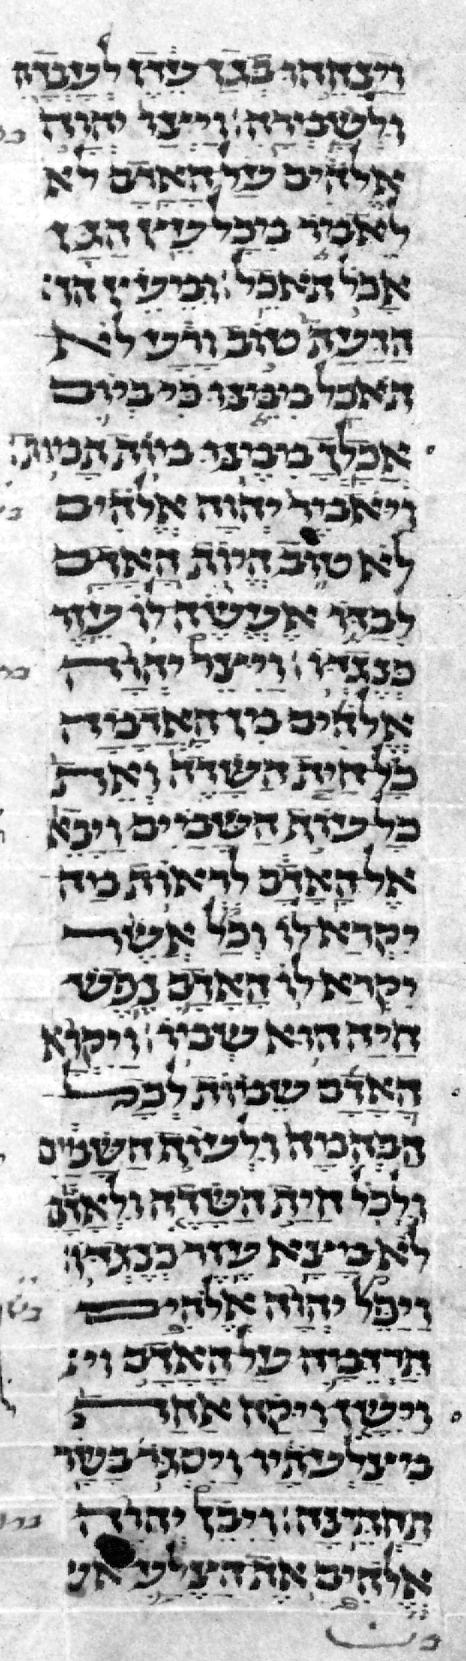 וינחהו בגן עדן לעבדה
ולשמרה׃ ויצו יהוה
אלהים על האדם לא
לאמר מכל עץ הגן
אכל תאכל׃ ומעץ הד
הדעת טוב ורע לא
תאכל ממנו כי ביום
אכלך ממנו מות תמות׃
ויאמר יהוה אלהים
לא טוב היות האדם
לבדו אעשה לו עזר
כנגדו׃ ויצר יהוה
אלהים מן האדמה
כל חית השדה ואת
כל עוף השמים ויבא
אל האדם לראות מה
יקרא לו וכל אשר
יקרא לו האדם נפש
חיה הוא שמו׃ ויקרא
האדם שמות לכל
הבהמה ולעוף השמים
ולכל חית השדה ולאדם
לא מצא עזר כנגדו׃
ויפל יהוה אלהים
תרדמה על האדם וי
ויישן ויקח אחת
מצלעתיו ויסגר בשר
תחתנה׃ ויבן יהוה
אלהים את הצלע